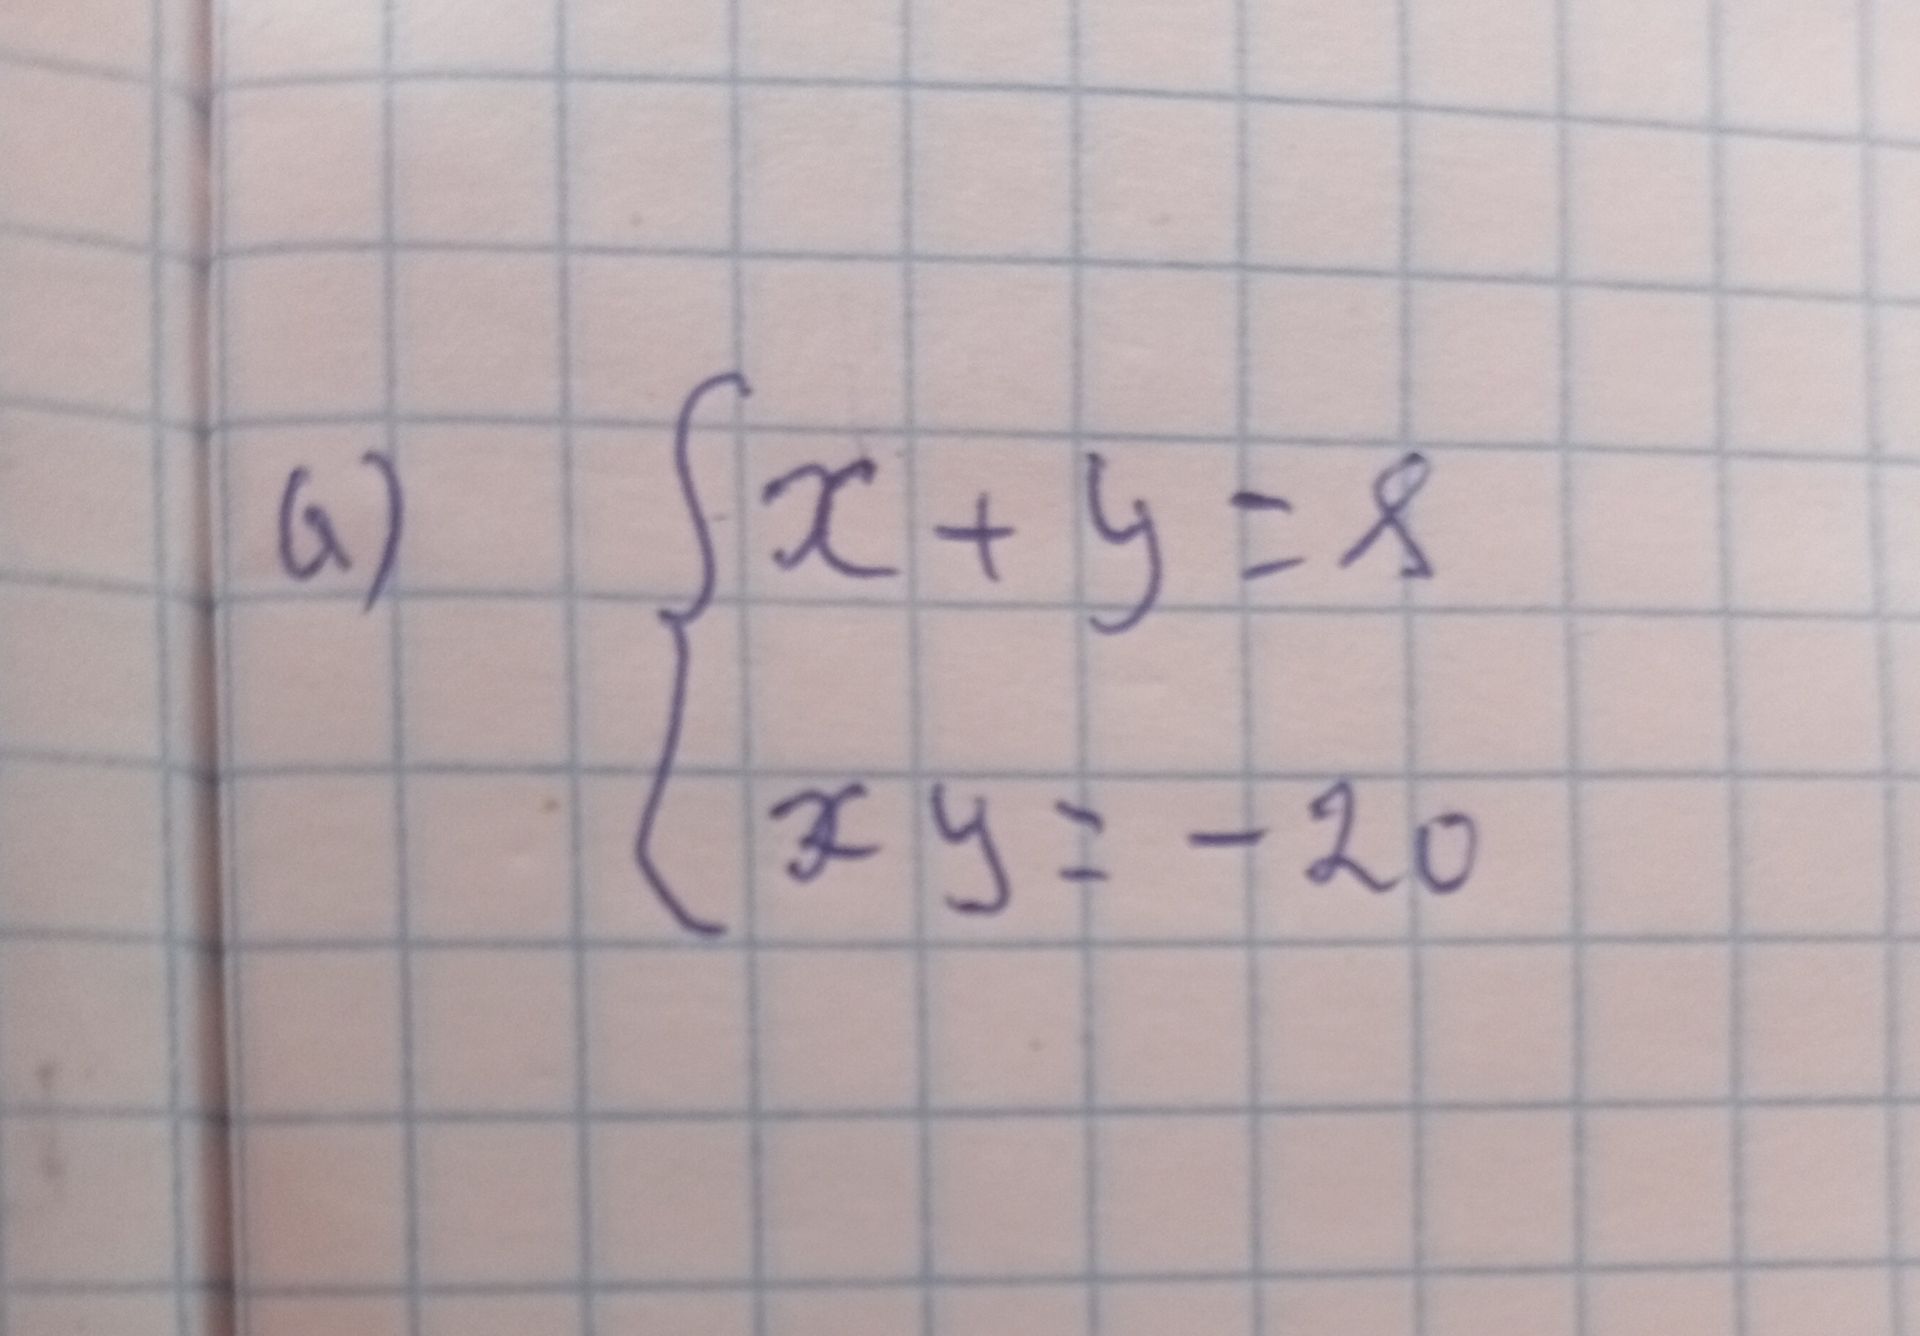 a) { x + y = 8
xy = -20